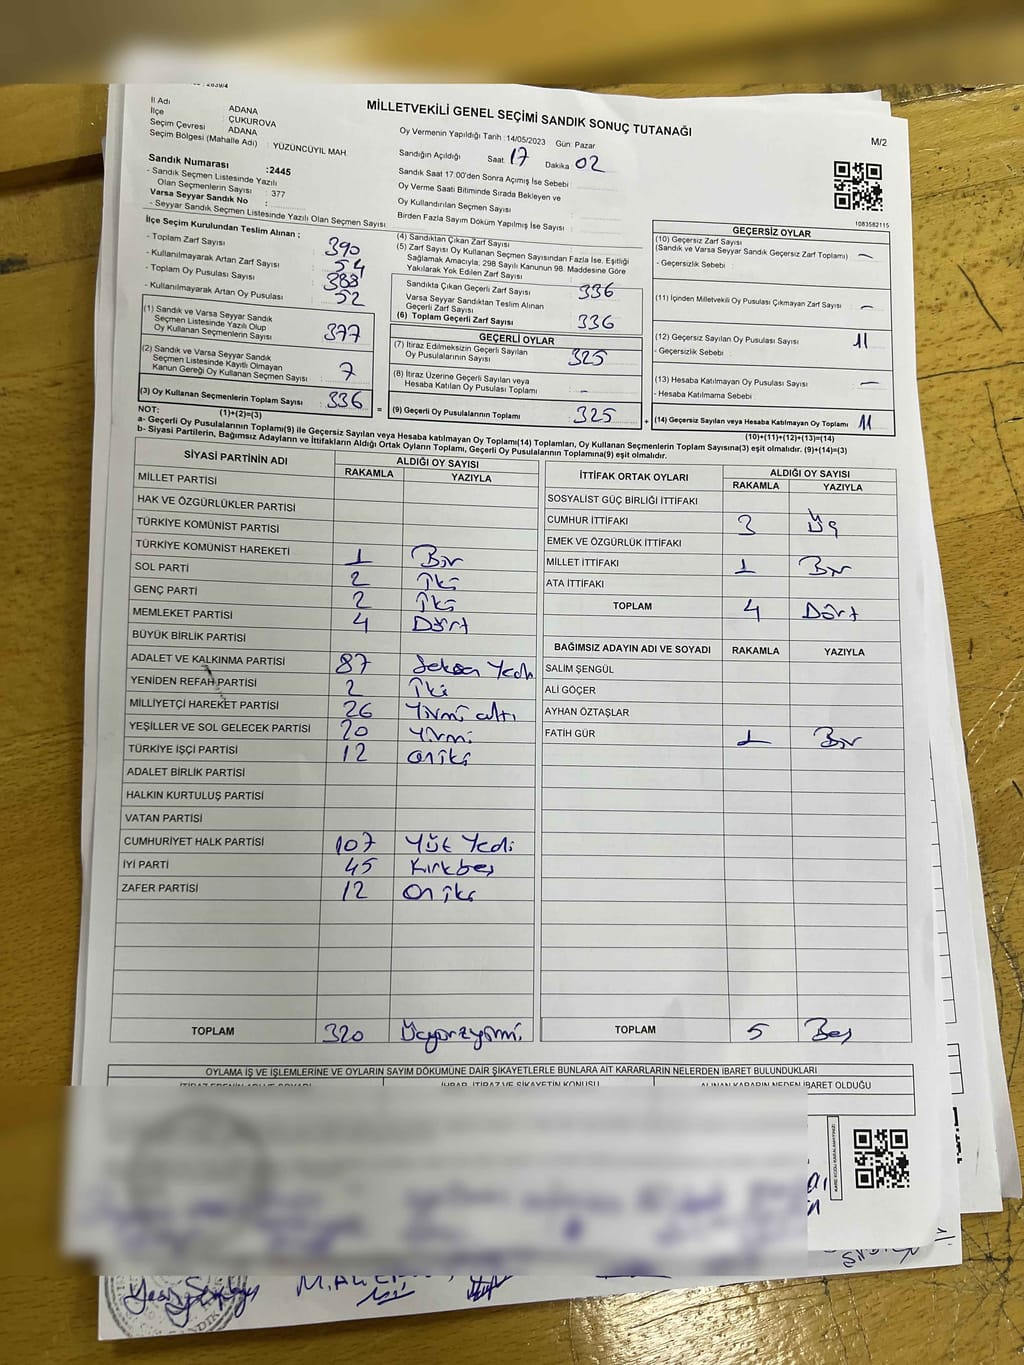 MİLLETVEKİLİ GENEL SEÇİMİ SANDIK SONUÇ TUTANAĞI
M/2
İl Adı ADANA
İlçe : ÇUKUROVA
Seçim Çevresi ADANA
Seçim Bölgesi (Mahalle Adı) : YÜZÜNCÜYIL MAH
Oy Vermenin Yapıldığı Tarih :14/05/2023 Gün: Pazar
Sandığın Açıldığı Saat 17 Dakika 02
Sandık Saat 17:00'den Sonra Açımış İse Sebebi
Oy Verme Saati Bitiminde Sırada Bekleyen ve
Oy Kullandırılan Seçmen Sayısı
Birden Fazla Sayım Döküm Yapılmış İse Sayısı
Sandık Numarası :2445
- Sandık Seçmen Listesinde Yazılı
Olan Seçmenlerin Sayısı : 377
Varsa Seyyar Sandık No :
- Seyyar Sandık Seçmen Listesinde Yazılı Olan Seçmen Sayısı
1083582115
İlçe Seçim Kurulundan Teslim Alınan ;
- Toplam Zarf Sayısı 390
- Kullanılmayarak Artan Zarf Sayısı : 54
- Toplam Oy Pusulası Sayısı 388
- Kullanılmayarak Artan Oy Pusulası : 52
(1) Sandık ve Varsa Seyyar Sandık
Seçmen Listesinde Yazılı Olup
Oy Kullanan Seçmenlerin Sayısı 377
(2) Sandık ve Varsa Seyyar Sandık
Seçmen Listesinde Kayıtlı Olmayan
Kanun Gereği Oy Kullanan Seçmen Sayısı : 7
(3) Oy Kullanan Seçmenlerin Toplam Sayısı : 336
(1)+(2)=(3)
(4) Sandıktan Çıkan Zarf Sayısı
(5) Zarf Sayısı Oy Kullanan Seçmen Sayısından Fazla İse, Eşitliği
Sağlamak Amacıyla, 298 Sayılı Kanunun 98. Maddesine Göre
Yakılarak Yok Edilen Zarf Sayısı
Sandıkta Çıkan Geçerli Zarf Sayısı 336
Varsa Seyyar Sandıktan Teslim Alınan
Geçerli Zarf Sayısı
(6) Toplam Geçerli Zarf Sayısı 336
GEÇERLİ OYLAR
(7) İtiraz Edilmeksizin Geçerli Sayılan
Oy Pusulalarının Sayısı 325
(8) İtiraz Üzerine Geçerli Sayılan veya
Hesaba Katılan Oy Pusulası Toplamı -
(9) Geçerli Oy Pusulalarının Toplamı 325
GEÇERSİZ OYLAR
(10) Geçersiz Zarf Sayısı
(Sandık ve Varsa Seyyar Sandık Geçersiz Zarf Toplamı) -
- Geçersizlik Sebebi :
(11) İçinden Milletvekili Oy Pusulası Çıkmayan Zarf Sayısı -
(12) Geçersiz Sayılan Oy Pusulası Sayısı 11
- Geçersizlik Sebebi :
(13) Hesaba Katılmayan Oy Pusulası Sayısı -
- Hesaba Katılmama Sebebi
(14) Geçersiz Sayılan veya Hesaba Katılmayan Oy Toplamı 11
(10)+(11)+(12)+(13)=(14)
NOT:
a- Geçerli Oy Pusulalarının Toplamı(9) ile Geçersiz Sayılan veya Hesaba katılmayan Oy Toplamı(14) Toplamları, Oy Kullanan Seçmenlerin Toplam Sayısına(3) eşit olmalıdır. (9)+(14)=(3)
b- Siyasi Partilerin, Bağımsız Adayların ve İttifakların Aldığı Ortak Oyların Toplamı, Geçerli Oy Pusulalarının Toplamına(9) eşit olmalıdır.
SİYASİ PARTİNİN ADI ALDIĞI OY SAYISI
RAKAMLA YAZIYLA
MİLLET PARTİSİ
HAK VE ÖZGÜRLÜKLER PARTİSİ
TÜRKİYE KOMÜNİST PARTİSİ
TÜRKİYE KOMÜNİST HAREKETİ 1 Bir
SOL PARTİ 2 İki
GENÇ PARTİ 2 İki
MEMLEKET PARTİSİ 4 Dört
BÜYÜK BİRLİK PARTİSİ
ADALET VE KALKINMA PARTİSİ 87 Seksen Yedi
YENİDEN REFAH PARTİSİ 2 İki
MİLLİYETÇİ HAREKET PARTİSİ 26 Yirmi altı
YEŞİLLER VE SOL GELECEK PARTİSİ 20 Yirmi
TÜRKİYE İŞÇİ PARTİSİ 12 oniki
ADALET BİRLİK PARTİSİ
HALKIN KURTULUŞ PARTİSİ
VATAN PARTİSİ
CUMHURİYET HALK PARTİSİ 107 Yüz Yedi
İYİ PARTİ 45 Kırkbeş
ZAFER PARTİSİ 12 on iki
TOPLAM 320 Üçyüzyirmi
İTTİFAK ORTAK OYLARI ALDIĞI OY SAYISI
RAKAMLA YAZIYLA
SOSYALİST GÜÇ BİRLİĞİ İTTİFAKI
CUMHUR İTTİFAKI 3 Üç
EMEK VE ÖZGÜRLÜK İTTİFAKI
MİLLET İTTİFAKI 1 Bir
ATA İTTİFAKI
TOPLAM 4 Dört
BAĞIMSIZ ADAYIN ADI VE SOYADI RAKAMLA YAZIYLA
SALİM ŞENGÜL
ALİ GÖÇER
AYHAN ÖZTAŞLAR
FATİH GÜR 1 Bir
TOPLAM 5 Beş
OYLAMA İŞ VE İŞLEMLERİNE VE OYLARIN SAYIM DÖKÜMÜNE DAİR ŞİKAYETLERLE BUNLARA AİT KARARLARIN NELERDEN İBARET BULUNDUKLARI
İTİRAZ EDENİN ADI VE SOYADI İHBAR, İTİRAZ VE ŞİKAYETİN KONUSU ALINAN KARARIN NEDEN İBARET OLDUĞU